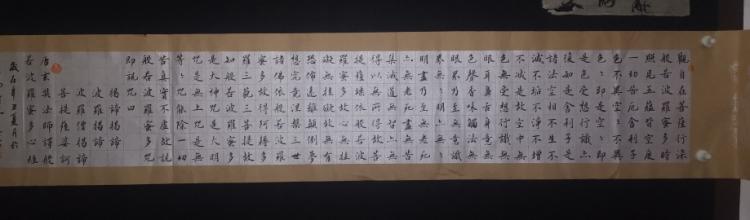 觀自在菩薩行深
般若波羅蜜多時
照見五蘊皆空度
一切苦厄舍利子
色不異空〻不異
色〻即是空〻即
是色受想行識亦
復如是舍利子是
諸法空相不生不
滅不垢不淨不增
不減是故空中無
色無受想行識無
眼耳鼻舌身意無
色聲香味觸法無
眼界乃至無意識
界無〻明亦無〻
明盡乃至無老死
亦無老死盡無苦
集滅道無智亦無
得以無所得故菩
提薩埵依般若波
羅蜜多故心無罣
礙無罣礙故無有
恐怖遠離顛倒夢
想究竟涅槃三世
諸佛依般若波羅
蜜多故得阿耨多
羅三藐三菩提故
知般若波羅蜜多
是大神咒是大明
咒是無上咒是無
等〻咒能除一切
苦真實不虛故說
般若波羅蜜多咒
即說咒曰
揭諦揭諦
波羅揭諦
波羅僧揭諦
菩提薩婆訶
唐玄奘法師譯般
若波羅蜜多心經
歲在辛丑夏月於